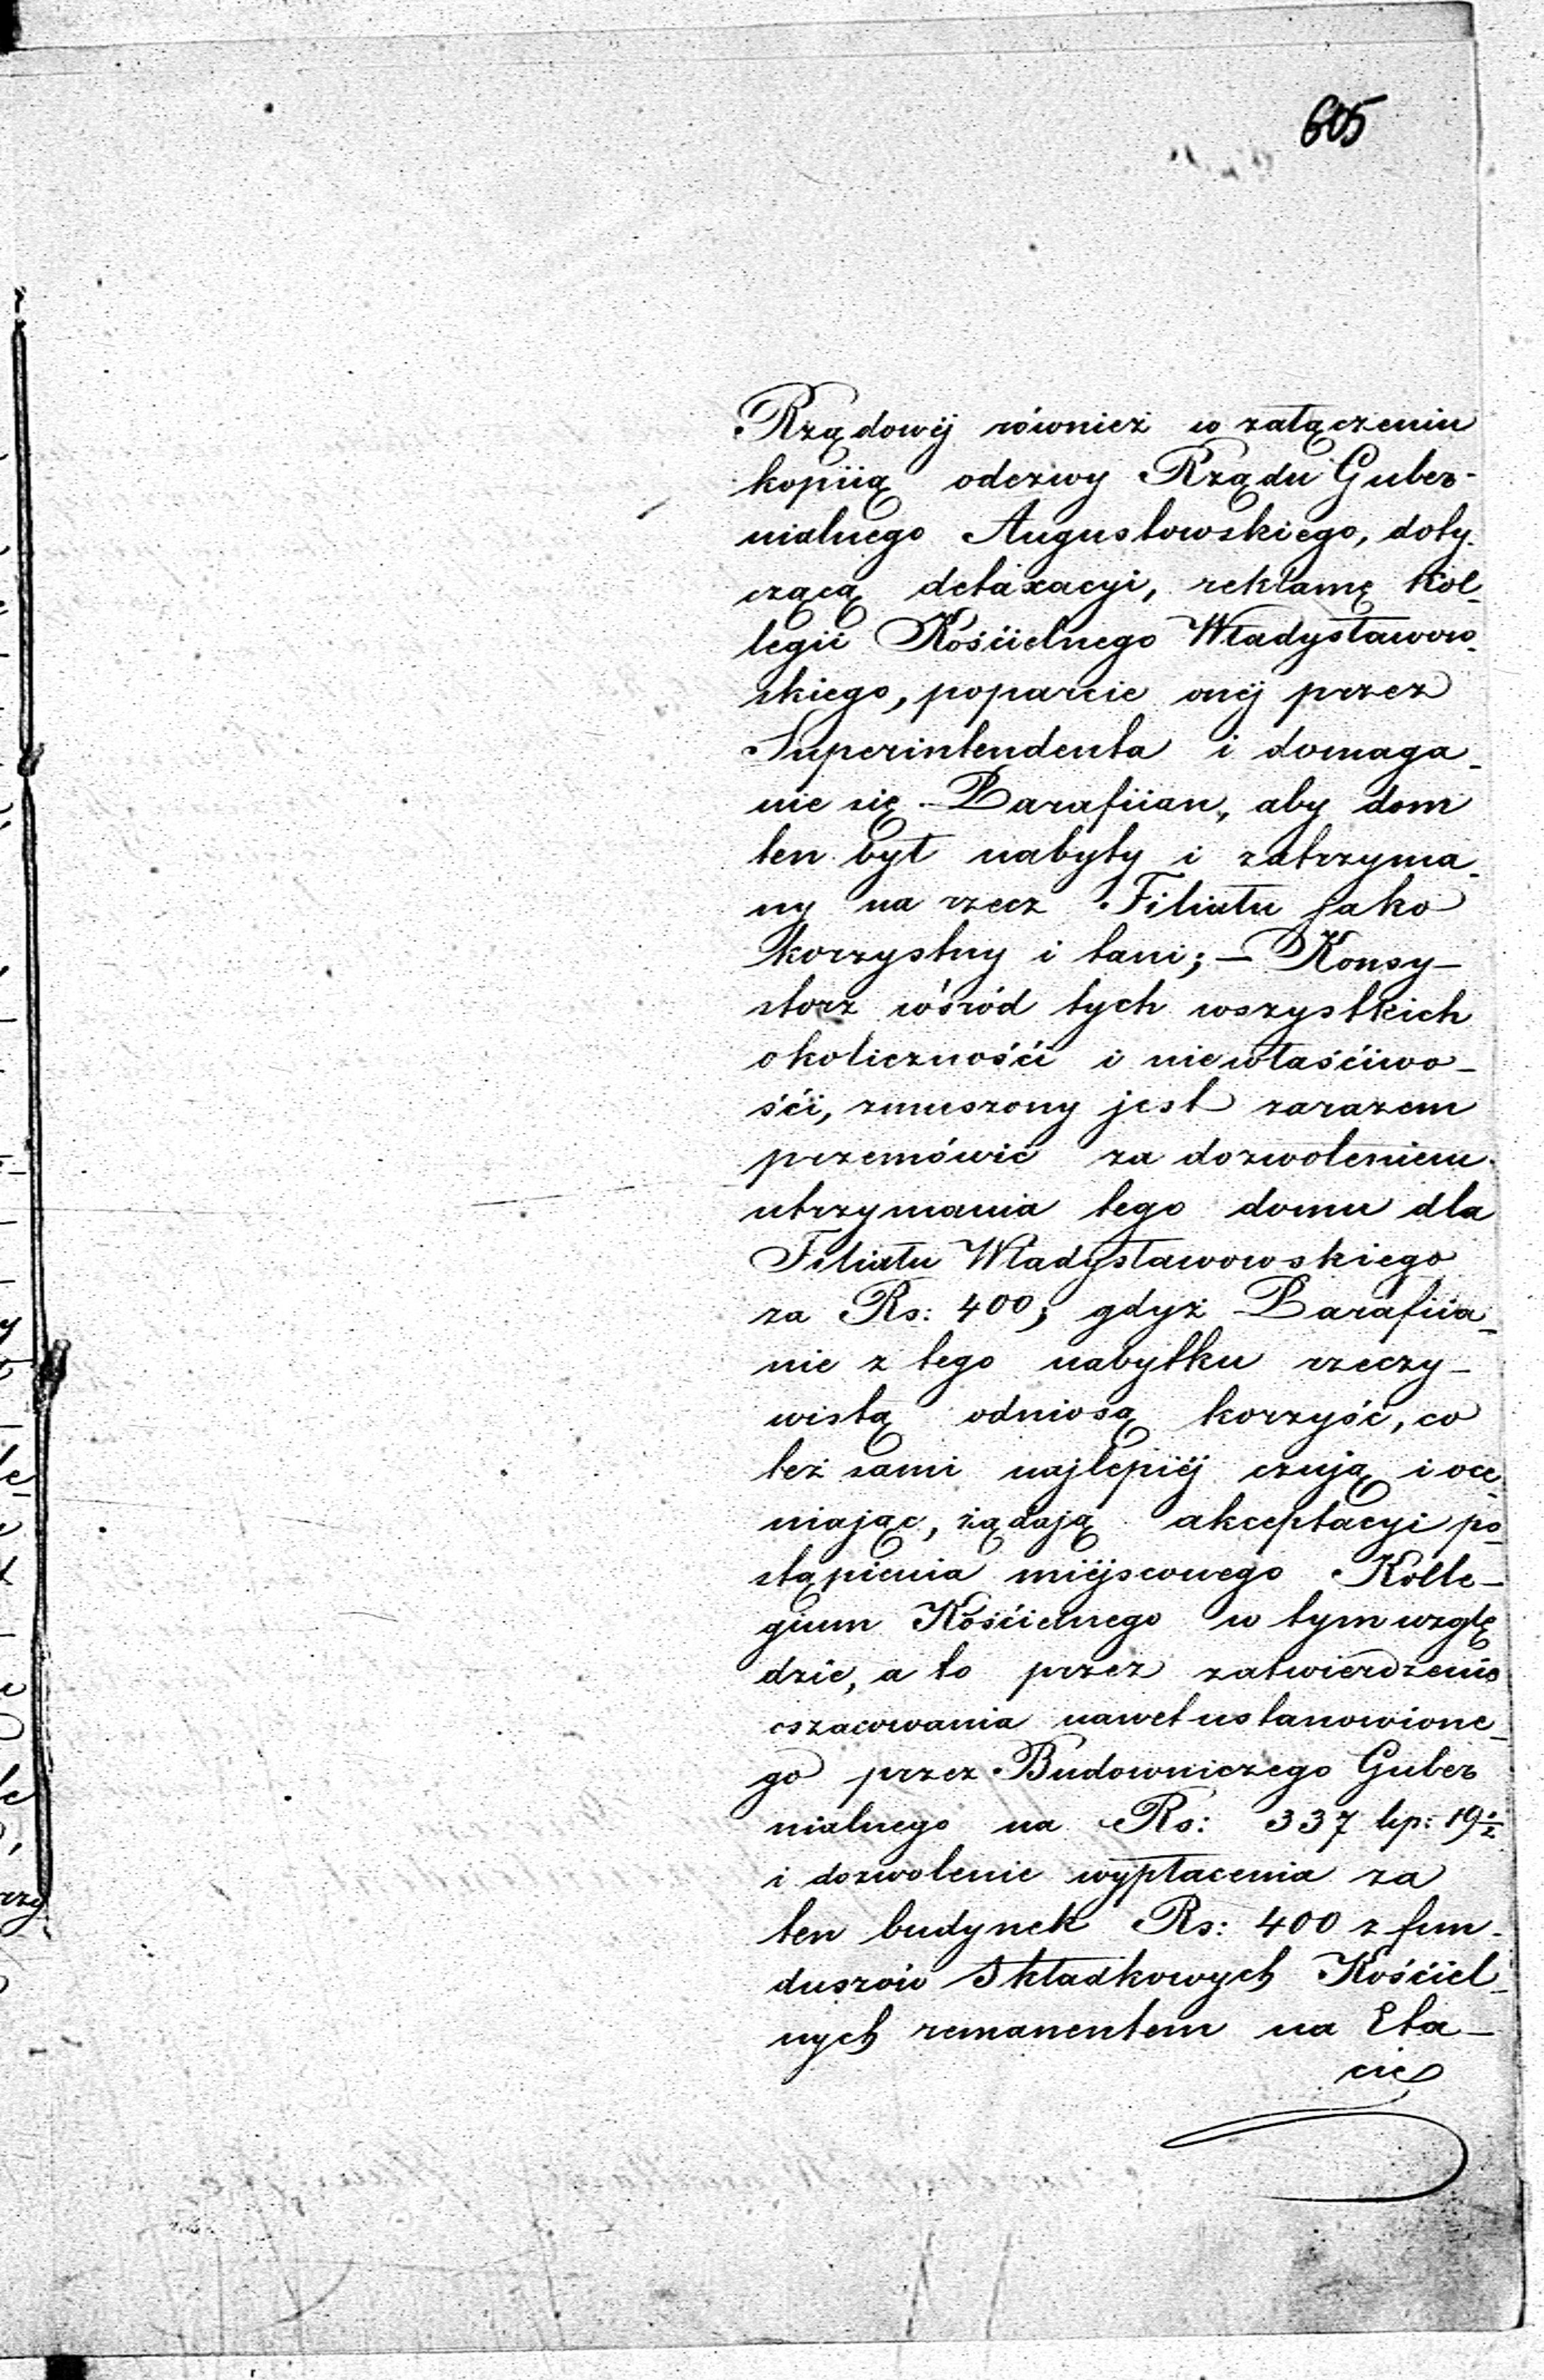 605
Rządowéj również w załączeniu
kopiią odezwy Rządu Guber-
nialnego Augustowskiego, doty-
czącą detaxacyi, reklamę Kol-
legii Kościelnego Władysławow-
skiego, poparcie onéj przez
Superintendenta i domaga-
nie się Parafiian, aby dom
ten był nabyty i zatrzyma-
ny na rzecz Filiału jako
korzystny i tani; – Konsy-
storz wśród tych wszystkich
okoliczności i niewłaściwo-
ści, zmuszony jest zarazem
przemówić za dozwoleniem
utrzymania tego domu dla
Filiału Władysławowskiego
za Rs: 400; gdyż Parafiia-
nie z tego nabytku rzeczy-
wistą odniosą korzyść, co
też sami najlepiéj czują i oce-
niając, żądają akceptacyi po-
stąpienia miéjscowego Kolle-
gium Kościelnego w tym wzglę
dzie, a to przez zatwierdzenie
oszacowania nawet ustanowione-
go przez Budowniczego Guber
nialnego na Rs: 337 kp: 19½
i dozwolenie wypłacenia za
ten budynek Rs: 400 z fun-
duszów Składkowych Kościel-
nych remanentem na Eta-
cie